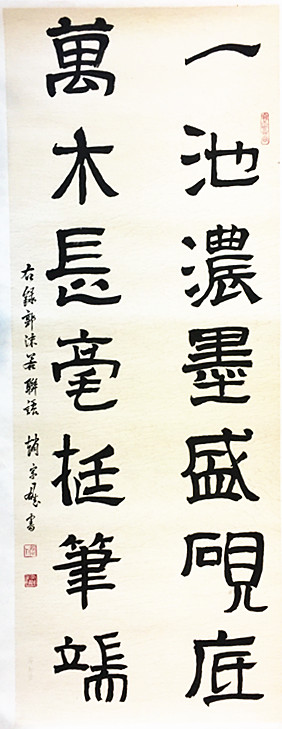 一池濃墨盛硯底
萬木長毫挺筆端
右錄郭沫若聯語 趙宗 書